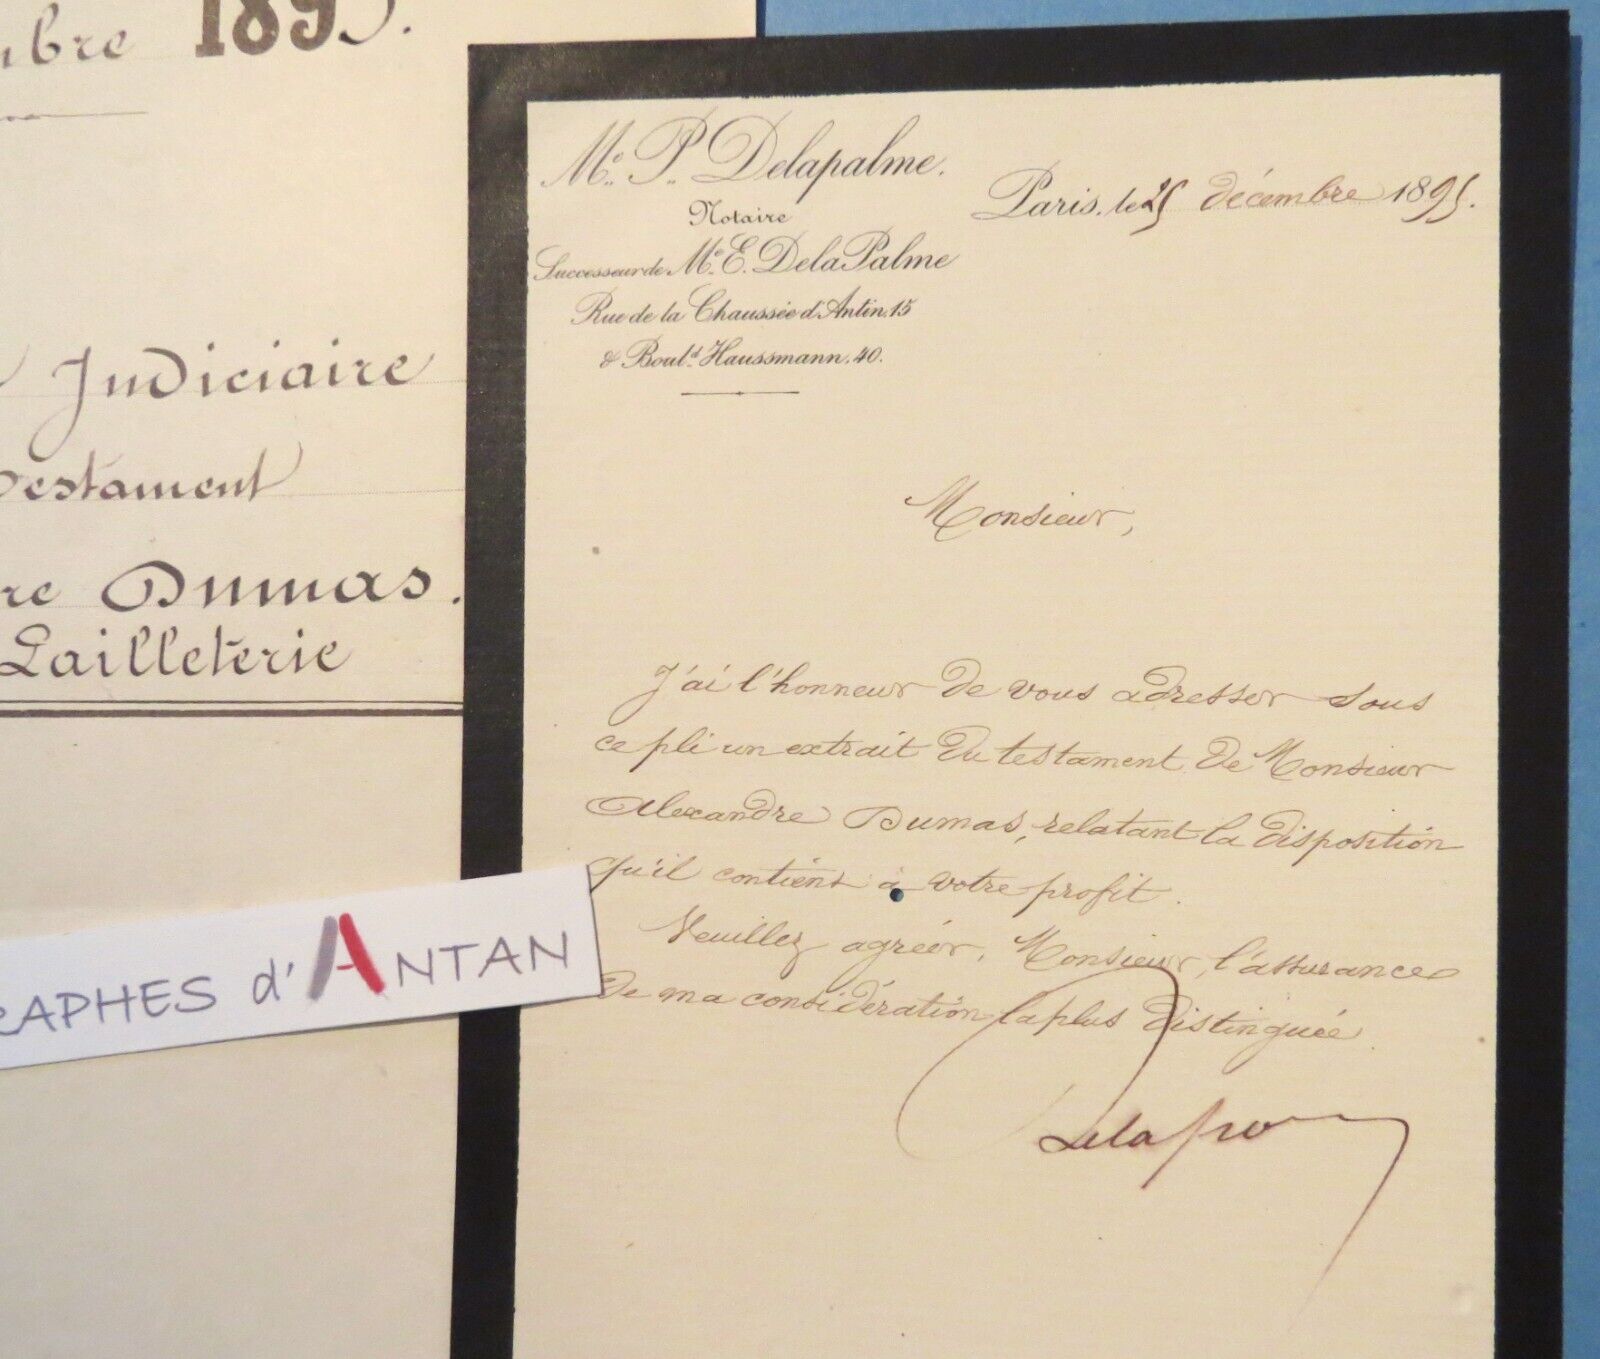 mbre 1895.
Judiciaire
Testament
re Dumas.
Lailleterie
RAPHES d'ANTAN
Me. P. Delapalme.
Notaire
Successeur de Me. E. DelaPalme
Rue de la Chaussée d'Antin. 15
& Boul.d Haussmann. 40.
Paris, le 25 décembre 1895.
Monsieur,
J'ai l'honneur de vous adresser sous
ce pli un extrait du testament de Monsieur
Alexandre Dumas, relatant la disposition
qu'il contient à votre profit.
Veuillez agréer, Monsieur, l'assurance
de ma considération la plus distinguée.